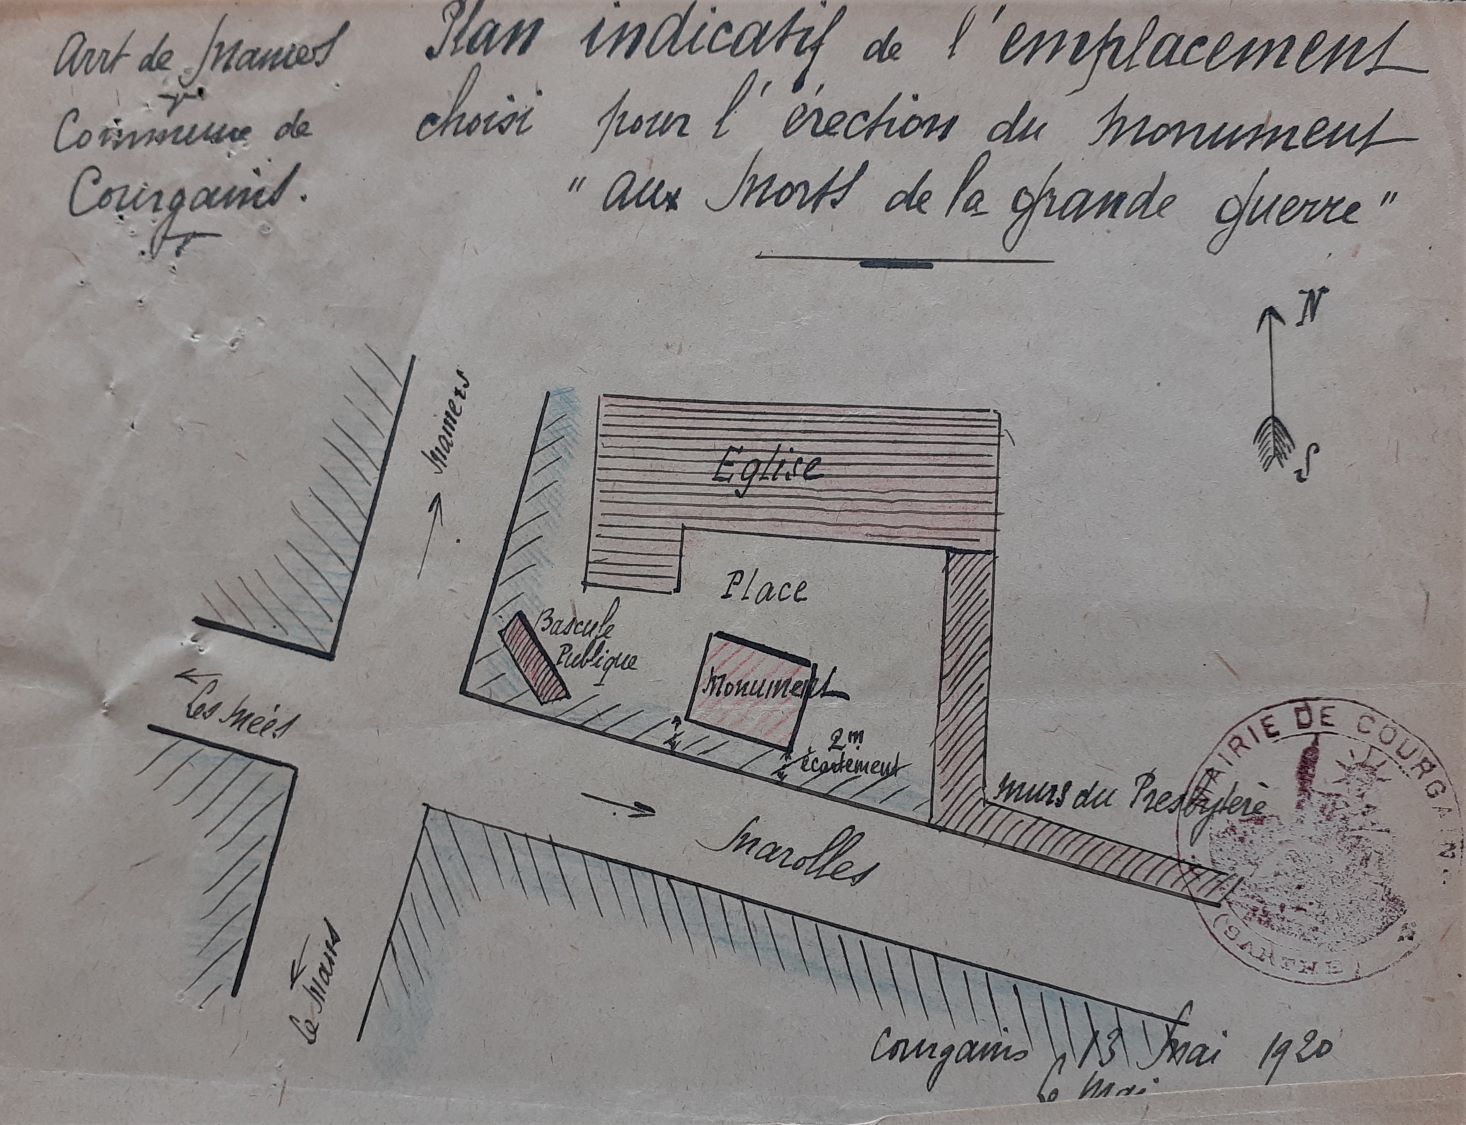 Arrt de Mamers
Commune de
Courgains.
Plan indicatif de l'emplacement
choisi pour l'érection du Monument
"aux Morts de la grande guerre"
N
S
Mamers
Eglise
Place
Bascule
Publique
Monument
2m
écartement
Les Mées
murs du Presbytère
Marolles
Le Mans
MAIRIE DE COURGAINS
(SARTHE)
Courgains, 13 Mai 1920
Le Mai